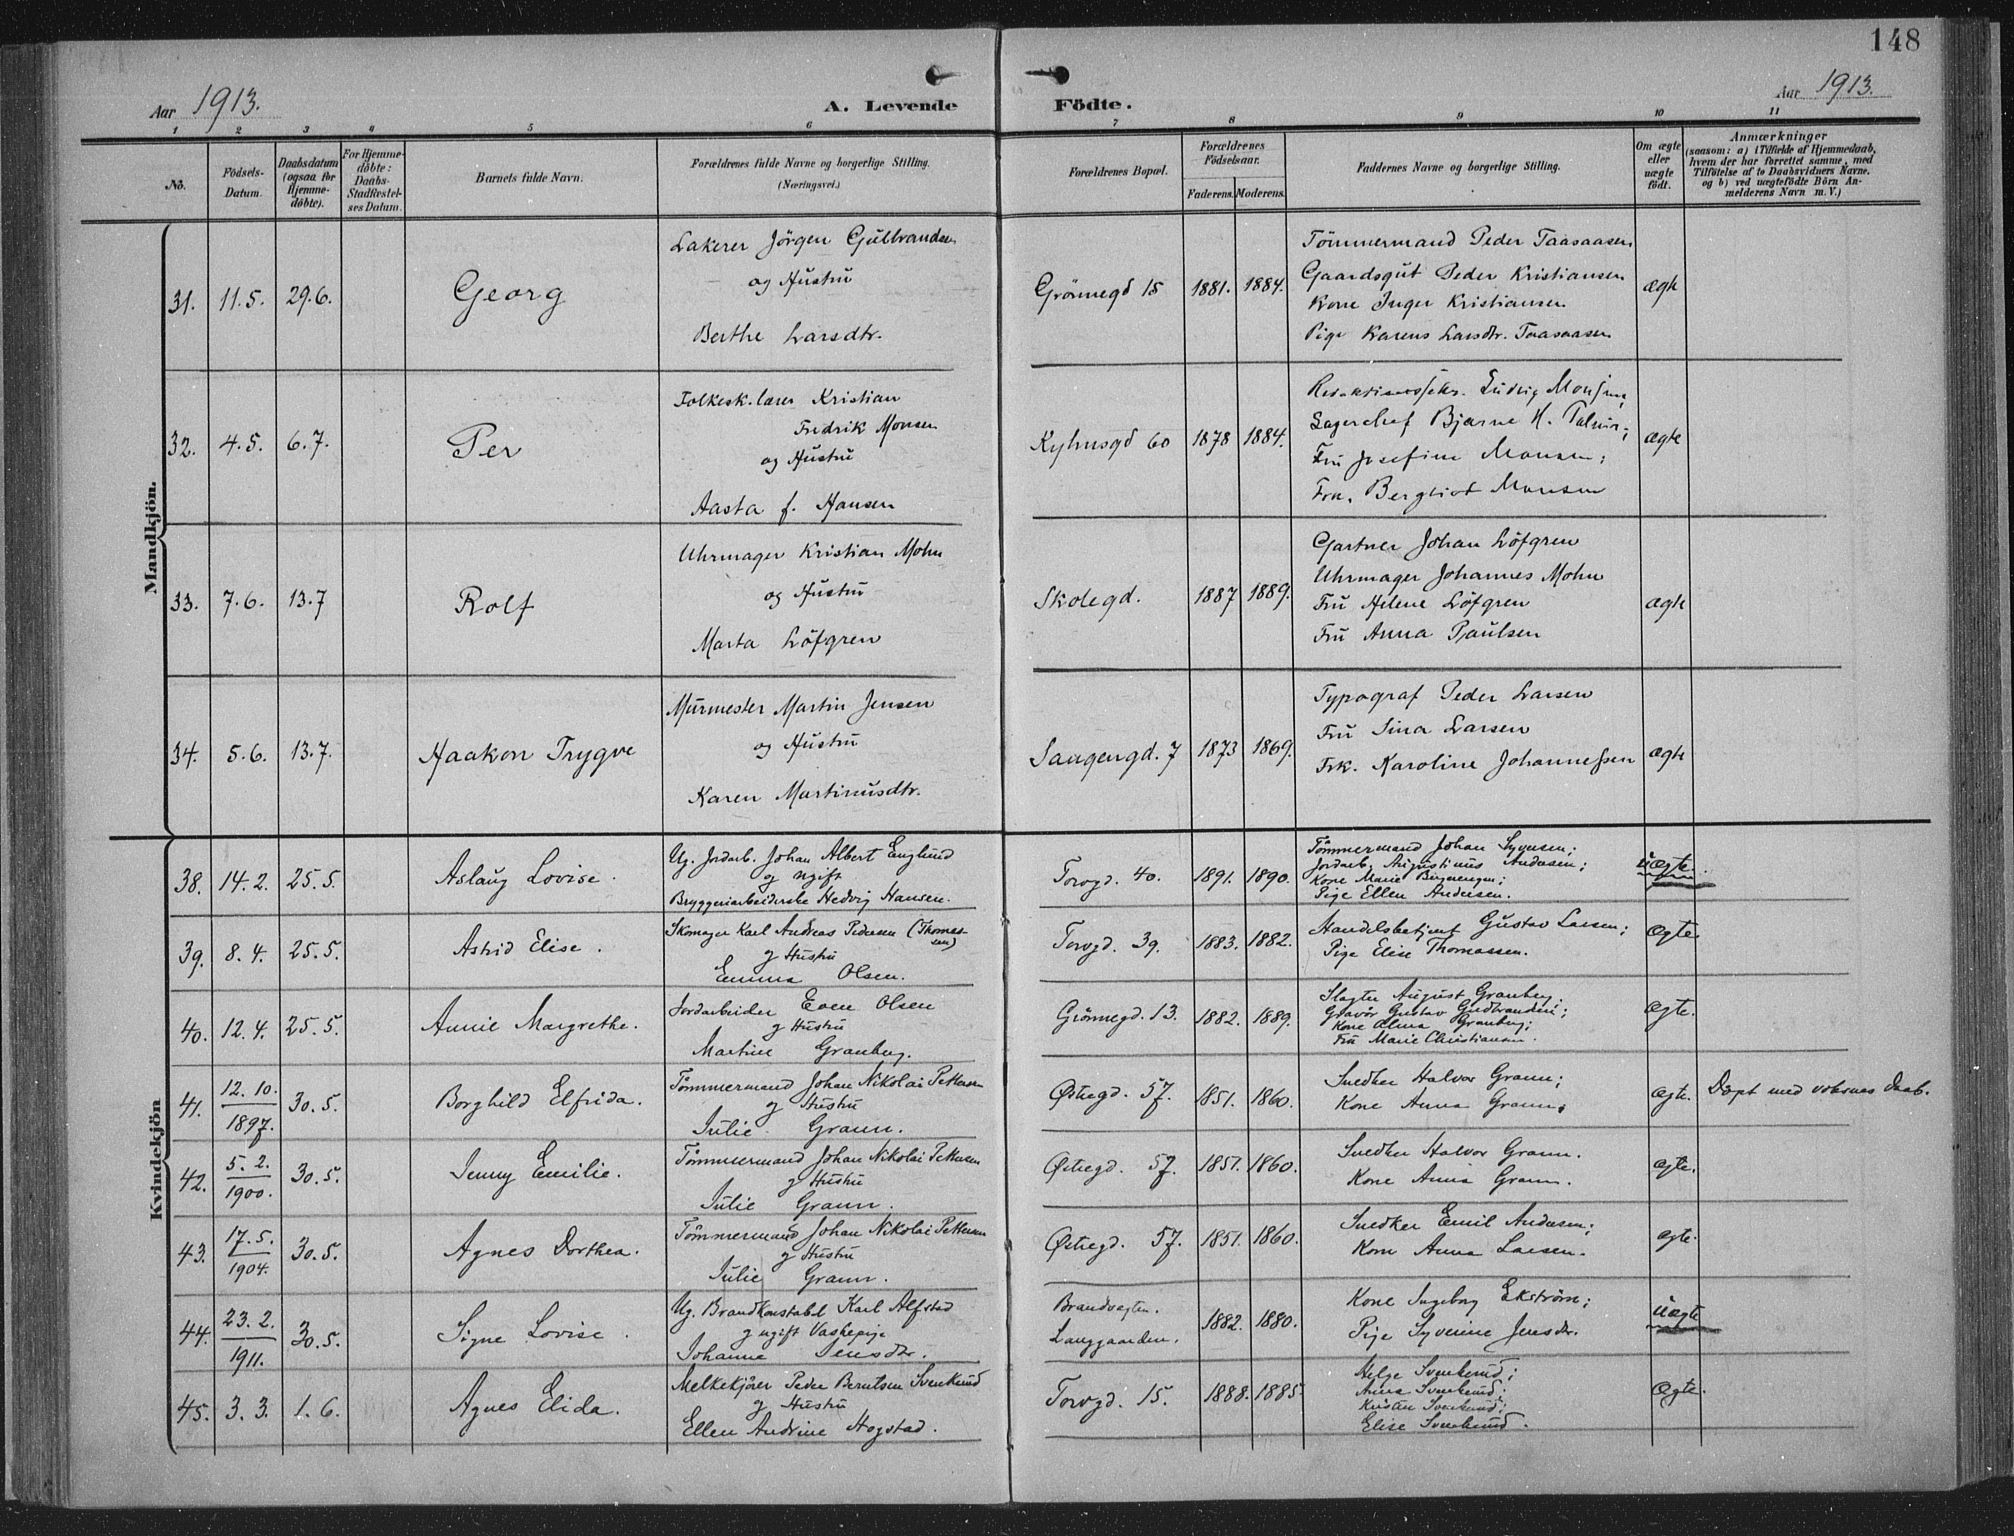 148
Aar 1913.
A. Levende Födte.
Aar 1913.
1 2 3 4 5 6 7 8 9 10 11
No.
Födsels-
Datum.
Daabsdatum
(ogsaa for
Hjemme-
döbte).
For Hjemme-
döbte:
Daabs-
Stadfæstel-
ses Datum.
Barnets fulde Navn.
Forældrenes fulde Navne og borgerlige Stilling.
(Næringsvei.)
Forældrenes Bopæl.
Forældrenes
Födselsaar.
Faderens.
Moderens.
Faddernes Navne og borgerlige Stilling.
Om ægte
eller
uægte
födt.
Anmærkninger
(saasom: a) i Tilfælde af Hjemmedaab,
hvem der har forrettet samme, med
Tilföielse af to Daabsvidners Navne.
og b) ved uægtefödte Börn An-
melderens Navn m. V.)
Mandkjön.
31. 11.5. 29.6. Georg
Lakerer Jörgen Gulbrandsen
og Hustru
Berthe Larsdtr.
Grönnegd 15 1881. 1884.
Tömmermand Peder Taasaasen
Gaardsgut Peder Kristiansen
Kone Inger Kristiansen
Pige Karens Larsdtr. Taasaasen
ægte
32. 4.5. 6.7. Per
Folkesk.lærer Kristian
Fredrik Monsen
og Hustru
Aasta f. Hansen
Kyhnsgd 60 1878 1884.
Redaktionssekr. Ludvig Monsen,
Lagerchef Bjarne H.
Fru Josefine Monsen;
Frk. Bergliot Monsen
ægte
33. 7.6. 13.7 Rolf
Uhrmager Kristian Mohn
og Hustru
Marta Löfgren
Skolegd. 1887 1889.
Gartner Johan Löfgren
Uhrmager Johannes Mohn
Fru Helene Löfgren
Fru Anna Paulsen
ægte
34. 5.6. 13.7. Haakon Trygve
Murmester Martin Jensen
og Hustru
Karen Martinusdtr.
Gaugengd. 7 1873 1869.
Typograf Peder Larsen
Fru Lina Larsen
Frk. Karoline Johannessen
ægte
Kvindekjön
38. 14.2. 25.5. Aslaug Lovise.
Ug. Jordarb. Johan Albert Englund
og ugift
Bryggeriarbeiderske Hedvig Hansen.
Torvgd. 40. 1891. 1890.
Tömmermand Johan Syversen;
Jordarb. Augustinus Andersen;
Kone Marie
Pige Ellen Andersen.
uægte.
39. 8.4. 25.5. Astrid Elise.
Skomager Karl Andreas Pedersen (Thomas-
sen)
og Hustru
Emma Olsen.
Torvgd. 39. 1883. 1882.
Handelsbetjent Gustav Larsen;
Pige Elise Thomassen.
Ægte
40. 12.4. 25.5. Annie Margrethe.
Jordarbeider Even Olsen
og Hustru
Martine Granberg.
Grönnegd. 13. 1882. 1889.
Slagter August Granberg;
Gravör Gustav Gudbrandsen;
Kone Olma Granberg;
Fru Marie Christiansen.
ægte.
41. 12.10. 1897. 30.5. Borghild Elfrida.
Tömmermand Johan Nikolai Pettersen
og Hustru
Julie Grann.
Østregd. 57. 1851. 1860.
Snedker Halvor Grann;
Kone Anna Grann;
ægte. Døpt med voksnes Daab.
42. 5.2. 1900. 30.5. Jenny Emilie.
Tömmermand Johan Nikolai Pettersen
og Hustru
Julie Grann.
Østregd. 57. 1851. 1860.
Snedker Halvor Grann.
Kone Anna Grann.
ægte.
43. 17.5. 1904. 30.5. Agnes Dorthea.
Tömmermand Johan Nikolai Pettersen
og Hustru
Julie Grann.
Østregd. 57. 1851. 1860.
Snedker Emil Andersen;
Kone Anna Larsen.
ægte.
44. 23.2. 1911. 30.5. Signe Lovise.
Ug. Brandkonstabel Karl Alfstad
og ugift Vaskepige
Johanne Jensdtr.
Brandvagten.
Langgaarden. 1882. 1880.
Kone Ingeborg Ekström;
Pige Syverine Jensdtr.
uægte
45. 3.3. 1.6. Agnes Elida.
Melkekjörer Peder Berntsen Svenkerud
og Hustru
Ellen Andrine Hogstad.
Torvgd. 15. 1888. 1885.
Helge Svenkerud;
Anna Svenkerud;
Kristen Svenkerud;
Elise Svenkerud.
Ægte.